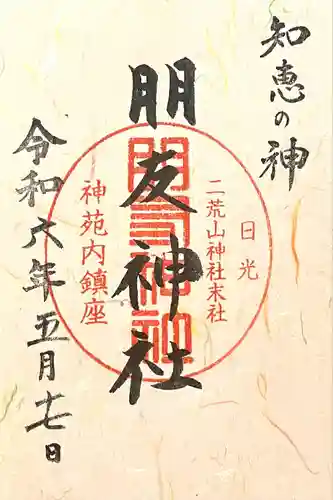 知恵の神
日光
二荒山神社末社
朋友神社
朋友神社
神苑内鎮座
令和六年五月十七日